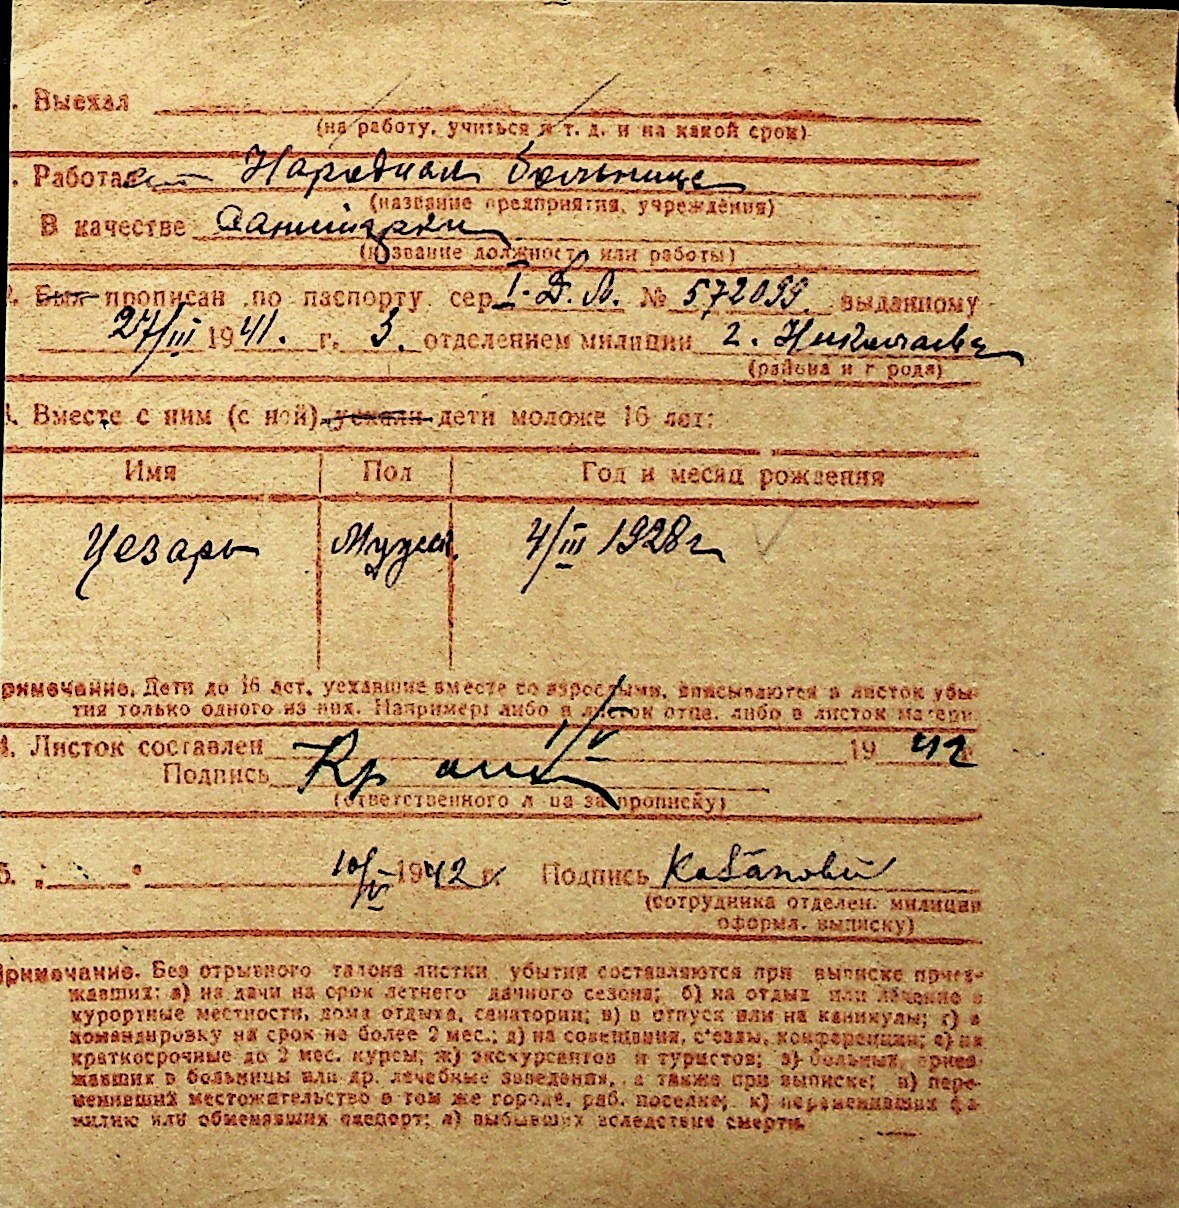 . Выехал
(на работу, учиться и т. д. и на какой срок)
. Работает Народная больница
(название предприятия, учреждения)
В качестве Санитарки
(название должности или работы)
2. Был прописан по паспорту сер. I-Д.Л. № 572099. выданному
27/III 1941. г. 3. отделением милиции г. Николаева
(района и города)
. Вместе с ним (с ней) уехали дети моложе 16 лет:
Имя Пол Год и месяц рождения
Цезарь Мужск. 4/III 1928 г.
римечание. Дети до 16 лет, уехавшие вместе со взрослыми, вписываются в листок убы-
тия только одного из них. Например: либо в листок отца, либо в листок матери.
4. Листок составлен 1/V 1942
Подпись
(ответственного лица за прописку)
5. 10/V 1942 г. Подпись
(сотрудника отделен. милиции
оформл. выписку)
Примечание. Без отрывного талона листки убытия составляются при выписке приез-
жавших: а) на дачи на срок летнего дачного сезона; б) на отдых или лечение в
курортные местности, дома отдыха, санатории; в) в отпуск или на каникулы; г) в
командировку на срок не более 2 мес.; д) на совещания, с'езды, конференции; е) на
краткосрочные до 2 мес. курсы; ж) экскурсантов и туристов; з) больных, приез-
жавших в больницы или др. лечебные заведения, а также при выписке; и) пере-
менивших местожительство в том же городе, раб. поселке; к) переменивших фа-
милию или обменявших паспорт; л) выбывших вследствие смерти.